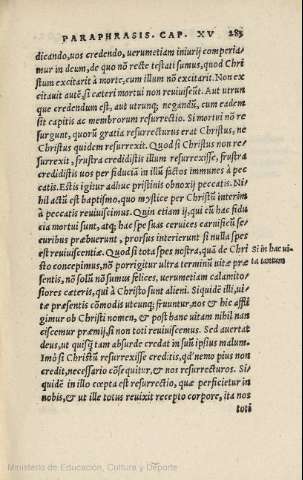 PARAPHRASIS. CAP. XV 283
dicando, uos credendo, uerumetiam iniurij comperia
mur in deum, de quo nõ recte testati sumus, quod Chri
stum excitarit à morte, cum illum nõ excitarit. Non ex
citauit autẽ, si cæteri mortui non reuiuiscunt. Aut utrun
que credendum est, aut utrunq; negandũ, cum eadem
sit capitis ac membrorum resurrectio. Si mortui nõ re
surgunt, quorũ gratia resurrecturus erat Christus, ne
Christus quidem resurrexit. Quod si Christus non re-
surrexit, frustra credidistis illum resurrexisse, frustra
credidistis uos per fiduciã in illũ factos immunes à pec
catis. Estis igitur adhuc pristinis obnoxij peccatis. Ni-
hil actũ est baptismo, quo mystice per Christũ interim
à peccatis reuiuiscimus. Quin etiam ij, qui cũ hac fidu
cia mortui sunt, atq; hac spe suas ceruices carnificũ se-
curibus præbuerunt, prorsus interierunt si nulla spes
est reuiuiscentiæ. Quod si tota spes nostra, quã de Chri
Si in hac ui-
sto concepimus, nõ porrigitur ultra terminũ uitæ præ
ta tantum
sentis, nõ solũ nõ sumus felices, uerumetiam calamito-
siores cæteris, qui à Christo sunt alieni. Siquidẽ illi, ui-
tæ præsentis cõmodis utcunq; fruuntur, nos & hic affli
gimur ob Christi nomen, & post hanc uitam nihil nan
ciscemur præmij, si non toti reuiuiscemus. Sed auertat
deus, ut quisq̃ tam absurde credat in suũ ipsius malum.
Imò si Christũ resurrexisse creditis, qđ nemo pius non
credit, necessario cõsequitur, & nos resurrecturos. Si-
quidẽ in illo cœpta est resurrectio, quæ perficietur in
nobis, & ut ille totus reuixit recepto corpore, ita nos
toti
Ministerio de Educación, Cultura y Deporte